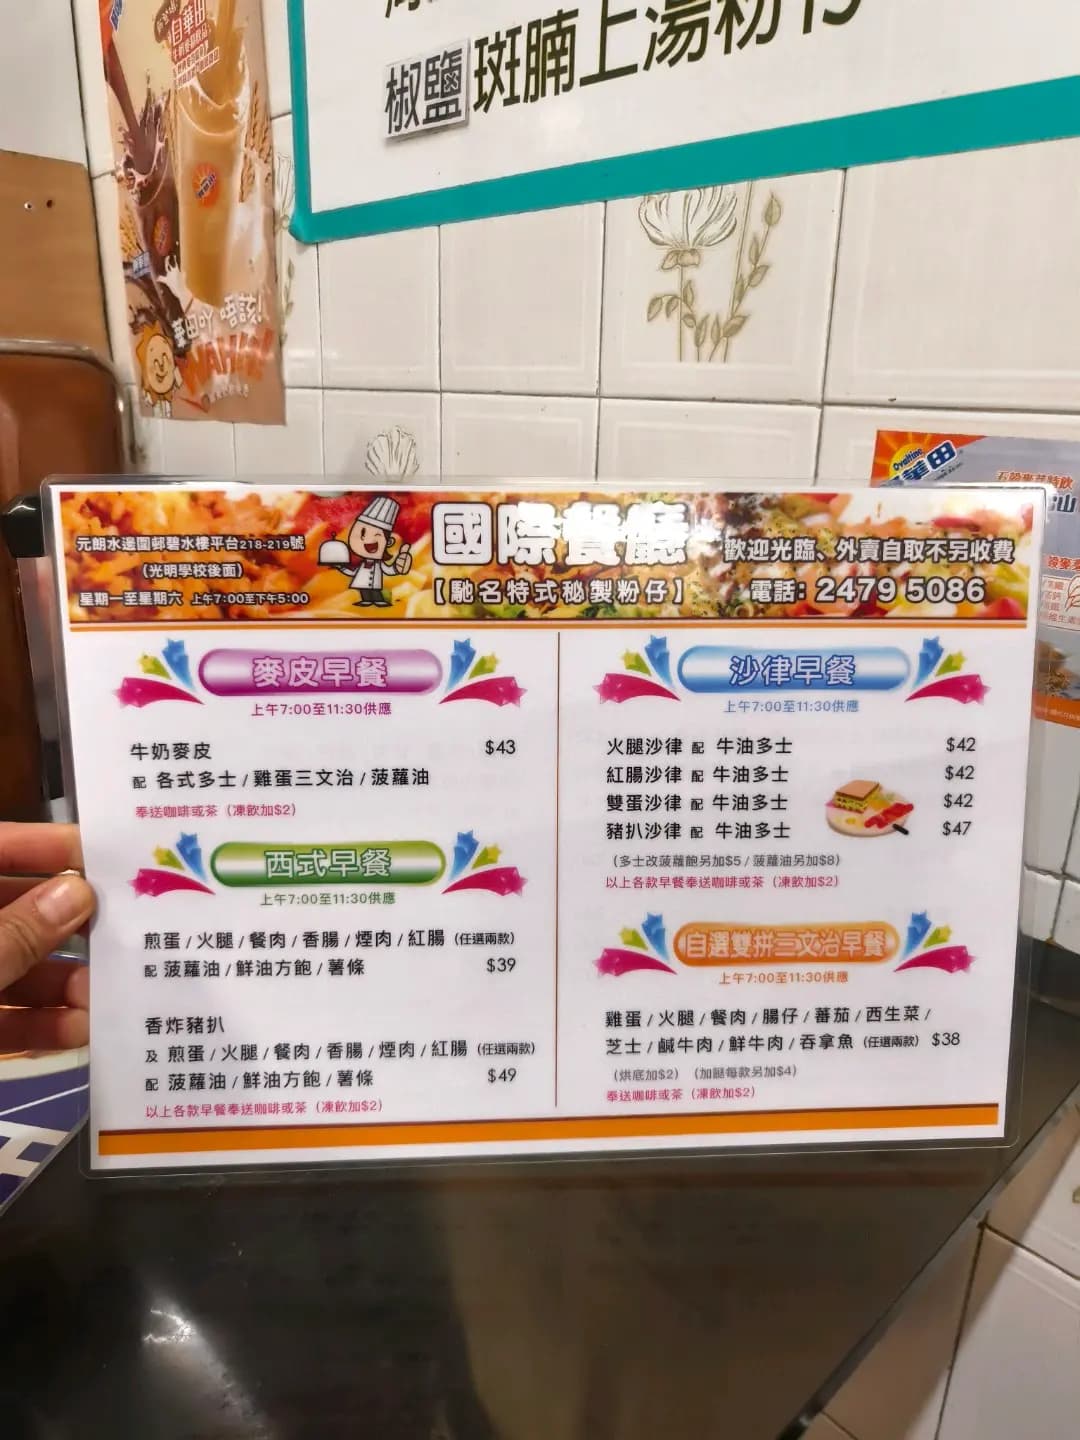 椒鹽斑腩上湯粉仔
自華田
華田吖 唔該!
WAHIN!
Ovaltine
華田
元朗水邊圍邨碧水樓平台218-219號
(光明學校後面)
星期一至星期六 上午7:00至下午5:00
國際餐廳
【馳名特式秘製粉仔】
歡迎光臨、外賣自取不另收費
電話: 2479 5086
麥皮早餐
上午7:00至11:30供應
牛奶麥皮 $43
配 各式多士 / 雞蛋三文治 / 菠蘿油
奉送咖啡或茶（凍飲加$2）
西式早餐
上午7:00至11:30供應
煎蛋 / 火腿 / 餐肉 / 香腸 / 煙肉 / 紅腸 (任選兩款)
配 菠蘿油 / 鮮油方飽 / 薯條 $39
香炸豬扒
及 煎蛋 / 火腿 / 餐肉 / 香腸 / 煙肉 / 紅腸 (任選兩款)
配 菠蘿油 / 鮮油方飽 / 薯條 $49
以上各款早餐奉送咖啡或茶（凍飲加$2）
沙律早餐
上午7:00至11:30供應
火腿沙律 配 牛油多士 $42
紅腸沙律 配 牛油多士 $42
雙蛋沙律 配 牛油多士 $42
豬扒沙律 配 牛油多士 $47
（多士改菠蘿飽另加$5 / 菠蘿油另加$8）
以上各款早餐奉送咖啡或茶（凍飲加$2）
自選雙拼三文治早餐
上午7:00至11:30供應
雞蛋 / 火腿 / 餐肉 / 腸仔 / 蕃茄 / 西生菜 /
芝士 / 鹹牛肉 / 鮮牛肉 / 吞拿魚 (任選兩款) $38
（烘底加$2）（加餸每款另加$4）
奉送咖啡或茶（凍飲加$2）